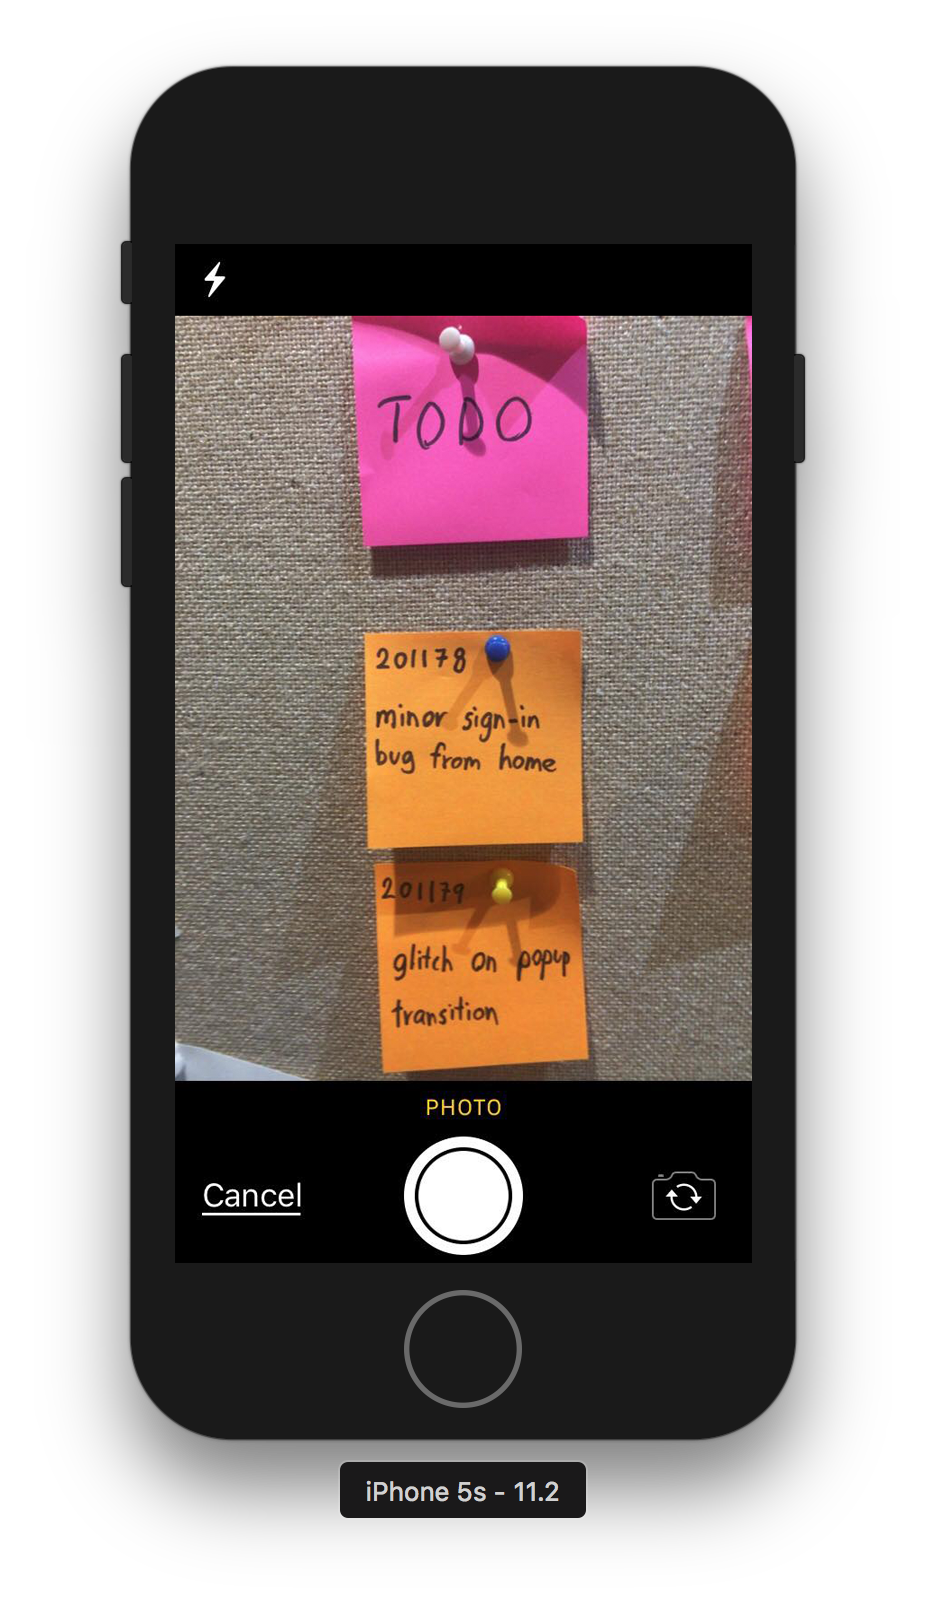 TODO
201178
minor sign-in
bug from home
201179
glitch on popup
transition
PHOTO
Cancel
iPhone 5s - 11.2